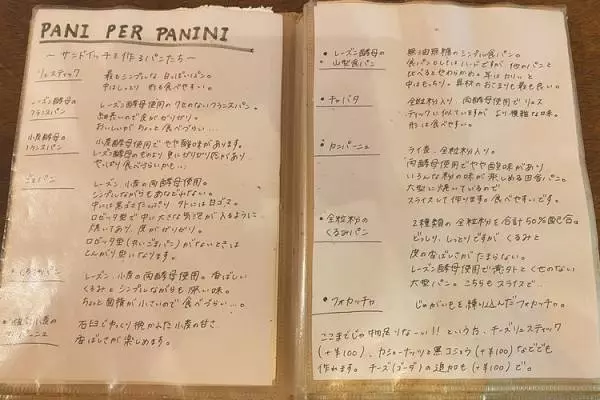 PANI PER PANINI
〜サンドイッチを作るパンたち〜
リュスティック
最もシンプルな白っぽいパン。
中はしっとり、形も食べやすい。
レーズン酵母の
フランスパン
レーズン酵母使用のクセのないフランスパン。
細長いので皮がガリガリ。
おいしいがちょっと食べづらい…。
小麦酵母の
フランスパン
小麦酵母使用でやや酸味があります。
レーズン酵母のものより更にガリガリ
やっぱり食べづらいかも…。
ごまパン
レーズン、小麦の両酵母使用。
シンプルながらもあなどれない。
中には黒ゴマたっぷり、外には白ゴマ。
ロゼッタ型で中に大きな気泡が入るように
焼いており、皮がガリガリ。
ロゼッタ型(丸いごまパン)がないときは
とんがり型になります。
くるみパン
レーズン、小麦の両酵母使用。香ばしい
くるみ。シンプルながらも深い味。
ちょっと面積が小さいので食べづらい…。
石臼でゆっくり挽かれた小麦の甘さ、
香ばしさが楽しめます。
・レーズン酵母の
山型食パン
無油無糖のシンプルな食パン。
食パンとしてはハードですが、他のパンと
比べるとやわらかめ。耳はカリッと
中はもっちり。具材のおさまりも最も良い。
・チャバタ
全粒粉入り、両酵母使用でリュス
ティックに似ていますが、より複雑な味。
形は食べやすい。
・カンパーニュ
ライ麦、全粒粉入り。
両酵母使用でやや酸味があり
いろんな粉の味が楽しめる田舎パン。
大型に焼いているので
スライスして作ります。食べやすいです。
・全粒粉の
くるみパン
2種類の全粒粉を合計50%配合。
どっしり、しっとりですが、くるみと
皮の香ばしさがたまらない。
レーズン酵母使用で意外とくせのない
大型パン。こちらもスライスで…
・フォカッチャ
じゃがいもを練り込んだフォカッチャ。
ここまでじゃ物足りなーい!!という方、チーズリュスティック
(+¥100)、カシューナッツと黒コショウ(+¥100)などでも
作れます。チーズ(ゴーダ)の追加も(+¥100)で。